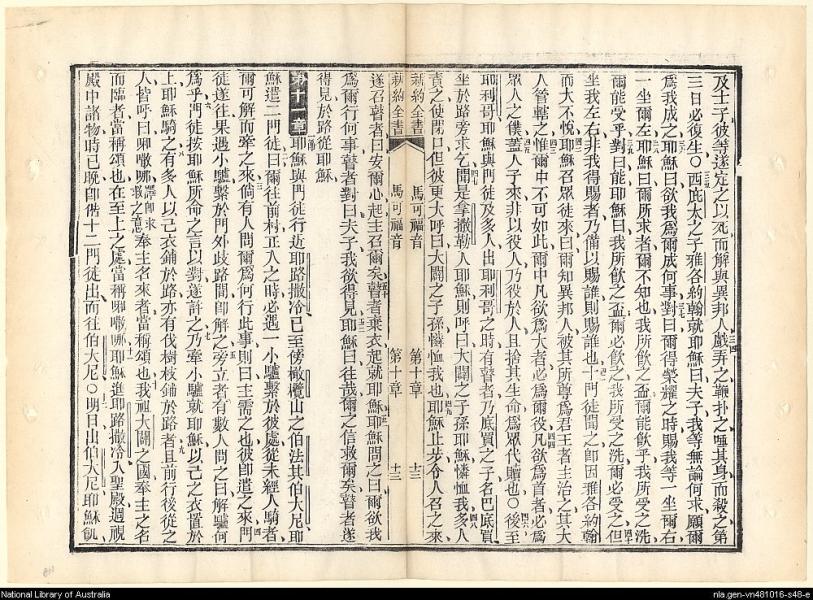 及士子彼等遂定之以死而解與異邦人戲弄之鞭扑之唾其身而殺之第
三日必復生〇西庇太之子雅各約翰就耶穌曰夫子我等無論何求願爾
爲我成之耶穌曰欲我爲爾成何事對曰爾得榮耀之時賜我等一坐爾右
一坐爾左耶穌曰爾所求者爾不知也我所飲之盃爾能飲乎我所受之洗
爾能受乎對曰能耶穌曰我所飲之盃爾必飲之我所受之洗爾必受之但
坐我左右非我得賜者乃備以賜誰則賜誰也十門徒聞之卽因雅各約翰
而大不悅耶穌召眾徒來曰爾知異邦人被其所尊爲君王者主治之其大
人管轄之惟爾中不可如此爾中凡欲爲大者必爲爾役凡欲爲首者必爲
眾人之僕蓋人子來非以役人乃役於人且捨其生命爲眾代贖也〇後至
耶利哥耶穌與門徒及多人出耶利哥之時有瞽者乃底買之子名巴底買
坐於路旁求乞聞是拿撒勒人耶穌則呼曰大闢之子孫耶穌憐恤我多人
責之使閉口但彼更大呼曰大闢之子孫憐恤我也耶穌止步令人召之來
新約全書 馬可福音 第十章 十三
新約全書 馬可福音 第十章 十三
遂召瞽者曰安爾心起主召爾矣瞽者棄衣起就耶穌耶穌問之曰爾欲我
爲爾行何事瞽者對曰夫子我欲得見耶穌曰往哉爾之信救爾矣瞽者遂
得見於路從耶穌
第十一章 耶穌與門徒行近耶路撒冷已至傍橄欖山之伯法其伯大尼耶
穌遣二門徒曰爾往前村正入之時必遇一小驢繫於彼處從未經人騎者
爾可解而牽之來倘有人問爾爲何行此事則曰主需之也彼卽遣之來門
徒遂往果遇小驢繫於門外歧路間卽解之旁立者有數人問之曰解驢何
爲乎門徒按耶穌所命之言以對遂許之乃牽小驢就耶穌以己之衣置於
上耶穌騎之有多人以己衣鋪於路亦有伐樹枝鋪於路者且前行後從之
人皆呼曰㗑㘔哪奉主名來者當稱頌也我祖大闢之國奉主之名
而臨者當稱頌也在至上之處當稱㗑㘔哪耶穌進耶路撒冷入聖殿週視
殿中諸物時已晚卽偕十二門徒出而往伯大尼〇明日出伯大尼耶穌飢
National Library of Australia
nla.gen-vn481016-s48-e